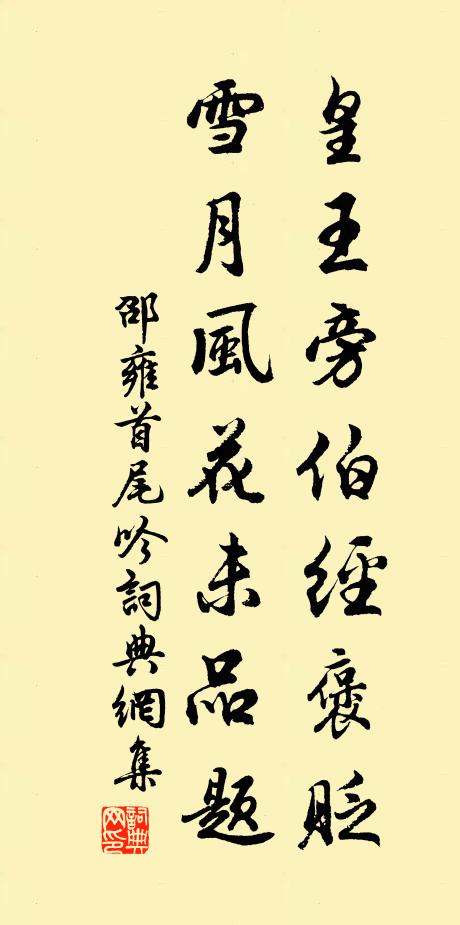 皇王旁伯經褒貶
雪月風花未品題
邵雍首尾吟詞典網集
詞典網印